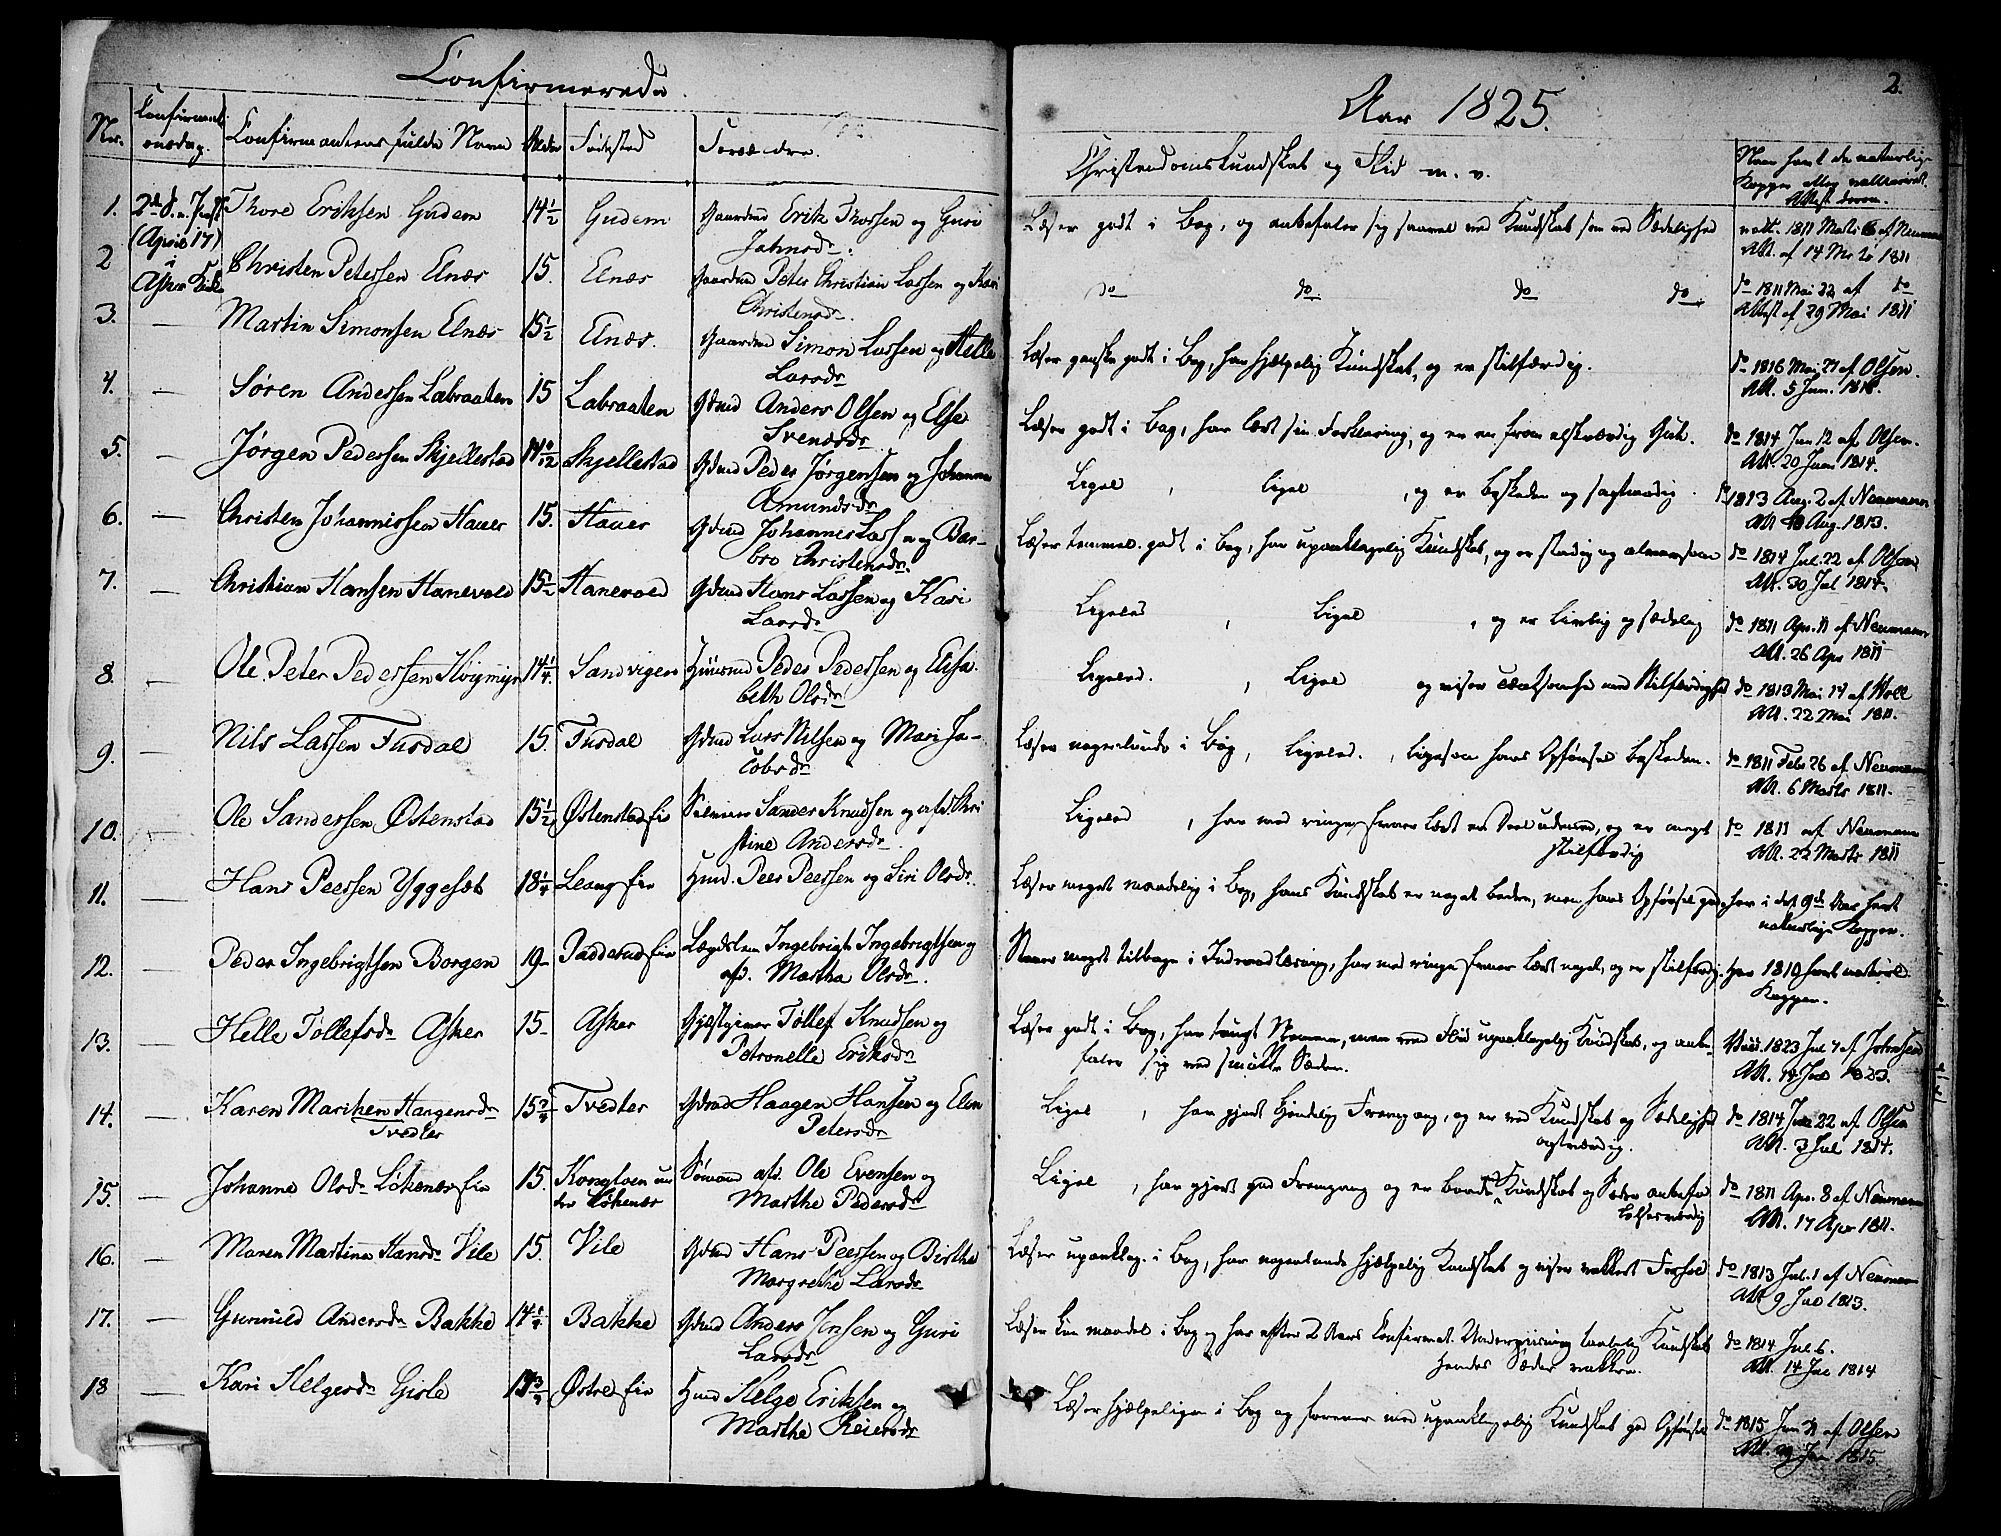 Confirmerede
Aar 1825.
2.
Nr.
Confirmati
onsdag.
Confirmantens fulde Navn
Alder
Fødested
Forældre.
Christendomskundskab og Flid m. v.
Naar havt de naturlige
Kopper eller vaccineret.
Attest derom.
1. 2d S. e. Paaske Thore Eriksen Gudem 14½ Gudem Gaardmd Erik Thorsen og Guri
Johnsdr.
(April 17)
i
Asker Kirke
Læser godt i Bog, og anbefaler sig saavel ved Kundskab som ved Sædelighed
vatt. 1811 Marts 6 af Neumann
Att. af 14 Mrts 1811
2 Christen Petersen Elnæs 15. Elnæs Gaardmd Peter Christian Larsen og Kari
Christensdr.
do do do do.
do 1811 Mai 22 af do
Attest af 29 Mai 1811
3. — Martin Simonsen Elnæs 15½ Elnæs. Gaardmd Simon Larsen og Helle
Larsdr
Læser ganske godt i Bog, har hjælpelig Kundskab, og er stilfærdig.
do 1816 Mai 27 af Olsen.
Att. 5 Jun. 1816.
4. — Søren Andersen Labraaten 15 Labraaten Gdmd Anders Olsen og Else
Svensdr.
Læser godt i Bog, har lært sin Forklaring, og er en from elskværdig Gut.
do 1814 Jun 12 af Olsen.
Att. 20 Juni 1814.
5. — Jørgen Pedersen Skjellestad 14 Skjellestad Gdmd Peder Jørgensen og Johanne
Amundsdr
Ligel , ligel , og er beskeden og sagtmodig.
do 1813 Aug. 2 af Neumann
Att. 10 Aug. 1813.
6. — Christen Johannissen Hauer 15. Hauer Gdmd Johannes Larsen og Bar-
bro Christensdr.
Læser temmel. godt i Bog, har upaaklagelig Kundskab, og er stadig og alvorsom
do 1814 Jul. 22 af Olsen
Att. 30 Jul 1814.
7. — Christian Hansen Hanevold 15½ Hanevold Gdmd Hans Larsen og Kari
Larsdr
Ligeled , Ligel , og er livlig og sædelig
do 1811 Apr. 11 af Neumann
Att. 26 Apr 1811
8. — Ole Peter Pedersen Høimyr 14¼ Sandvigen Huusmd Peder Pedersen og Elisa-
beth Olsdr
Ligeled. , Ligel og viser med Stilfærdighed
do 1813 Mai 14 af
Att. 22 Mai 1811.
9. — Nils Larsen Fusdal 15. Fusdal Gdmd Lars Nilsen og Mari Ja-
cobsdr
Læser nogenlunde i Bog, Ligeled. , ligesom hans Opførsel beskeden.
do 1811 Febr 26 af Neumann
Att. 6 Marts 1811.
10. — Ole Sandersen Østenstad 15½ Østenstadeie Sander Knudsen og afd. Kri
stine Andersdr.
Ligeled , har med ringe Evner lært en Deel udvend, og er meget
stilfærdig
do 1811 af Neumann
Att. 22 Marts 1811
11. — Hans Peersen Yggeset 18¼ Leangeie Hmd. Peer Peersen og Siri Olsdr.
Læser meget maadelig i Bog, hans Kundskab er noget bedre, men hans Opførsel god
har i det 9de Aar havt
naturlige Kopper.
12. — Peder Ingebrigtsen Borgen 19 Padderudeie Lægdslem Ingebrigt Ingebrigtsen og
afd. Martha Olsdr.
Staaer meget tilbage i Indenadlæsning, har med ringe Evner lært noget, og er stilfærdig.
Har 1810 havt naturl
Kopper.
13. — Helle Tollefsdr Asker 15 Asker Gjæstgiver Tollef Knudsen og
Petronelle Eriksdr
Læser godt i Bog, har tungt Nemme, men ved Flid upaaklagelig Kundskab, og anbe-
faler sig ved smukke Sæder.
Vacc. 1823 Jul 7 af Johnsen
Att. 14 Jul 1823.
14. — Karen Marthen Haagensdr
Tvedter
15¾ Tvedter Gdmd Haagen Hansen og Elen
Petersdr
Ligel , har gjort kjendelig Fremgang, og er ved Kundskab og Sædelighed
agtværdig.
do 1814 Jun 22 af Olsen
Att. 3 Jul 1814.
15. — Johanne Olsdr Løkenæseie 15. Konglven un
der Løkenæs
Sømand afd. Ole Evensen og
Marthe Pedersdr
Ligel , har gjort god Fremgang og er baade i Kundskab og Sæder anbefa
lelsesværdig
do 1811 Apr. 8 af Neumann
Att. 17 Apr 1811.
16. — Maren Martina Hansdr Vile 15. Vile Gdmd Hans Peersen og Birthe
Margrethe Larsdr
Læser upaaklag. i Bog, har nogenlunde hjælpelig Kundskab og viser vakkert Forhold
do 1813 Jul. 1 af Neumann
Att 9 Jul 1813.
17. — Gunnild Andersdr Bakke 14¼ Bakke Gdmd Anders Jensen og Guri
Larsdr
Læser kun maadel i Bog og har efter 2 Aars Confirmat. Underviisning taalelig Kundskab
hendes Sæder vakkre.
do 1814 Jul 6.
Att. 14 Jul 1814
18 — Kari Helgesdr Gisle Østreeie Hmd Helge Eriksen og
Marthe Reiersdr
Læser hjælpeligen i Bog og forener med upaaklagelig Kundskab god Opførsel
do 1815 Jun 21 af Olsen
Att. 29 Jun 1815.